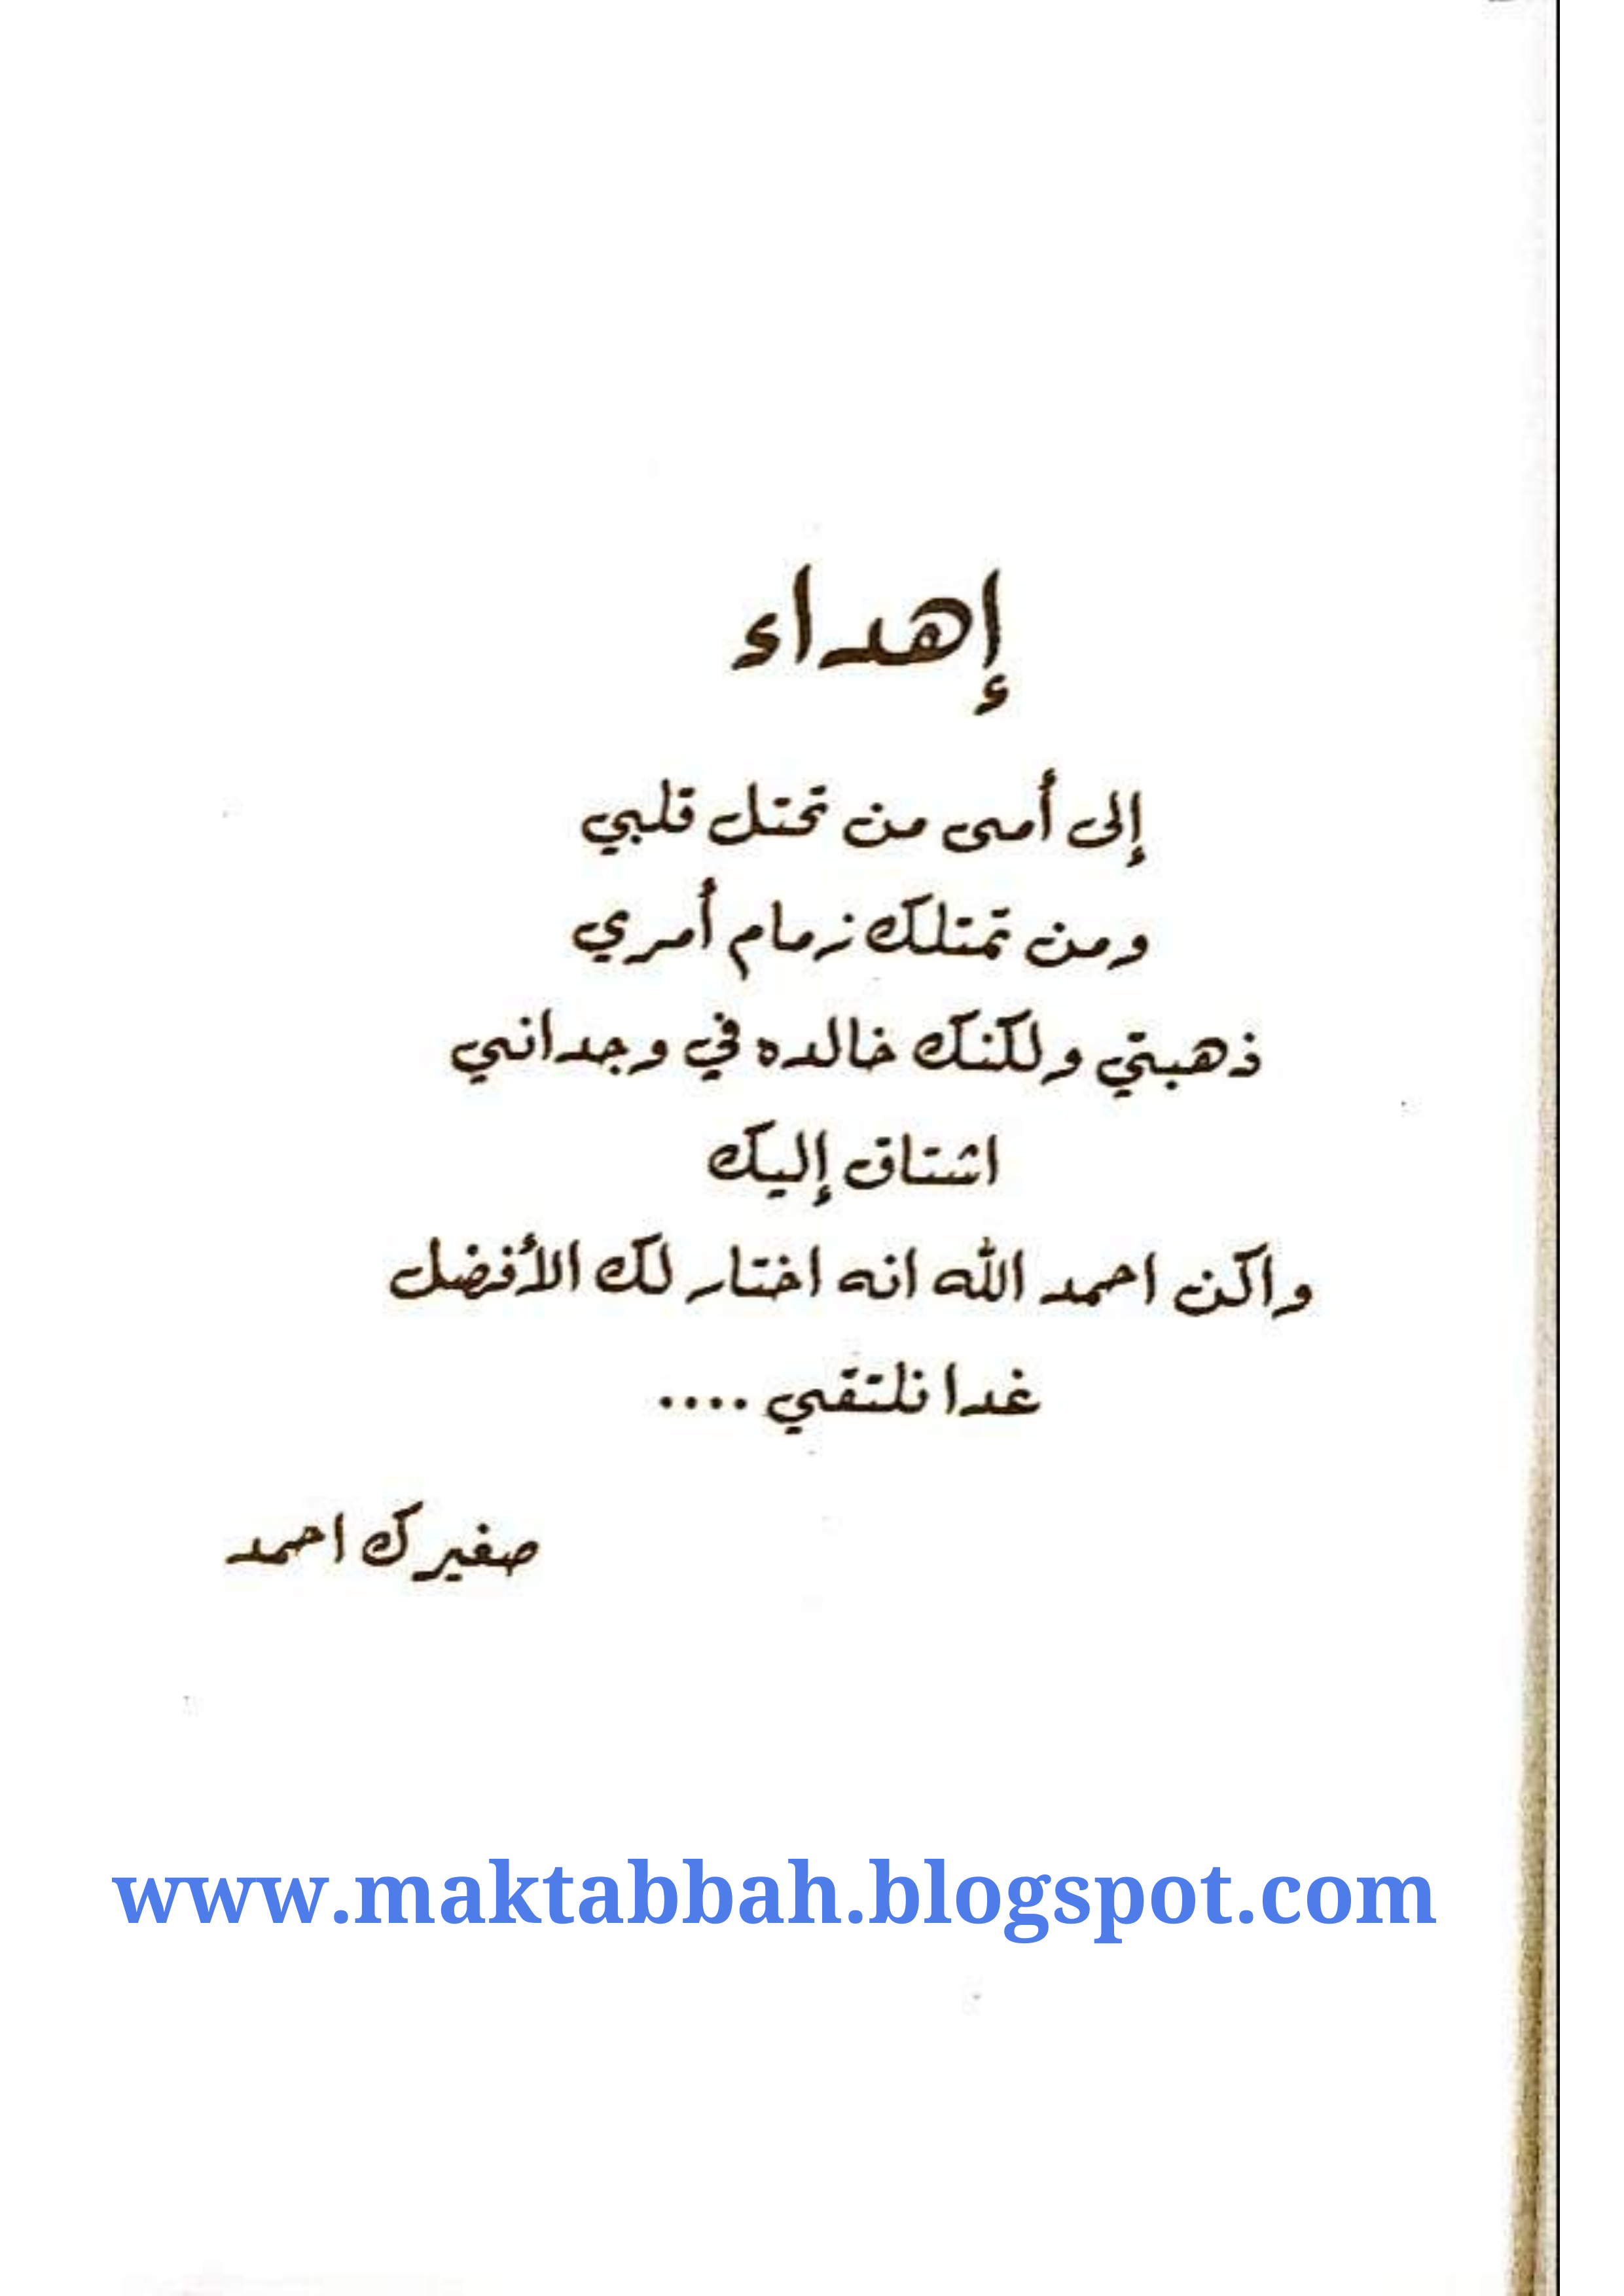 إهداء
إلى أمى من تحتل قلبي
ومن تمتلك زمام أمري
ذهبتي ولكنك خالده في وجداني
اشتاق إليك
واكن احمد الله انه اختار لك الأفضل
غدا نلتقي ....
صغيرك احمد
www.maktabbah.blogspot.com